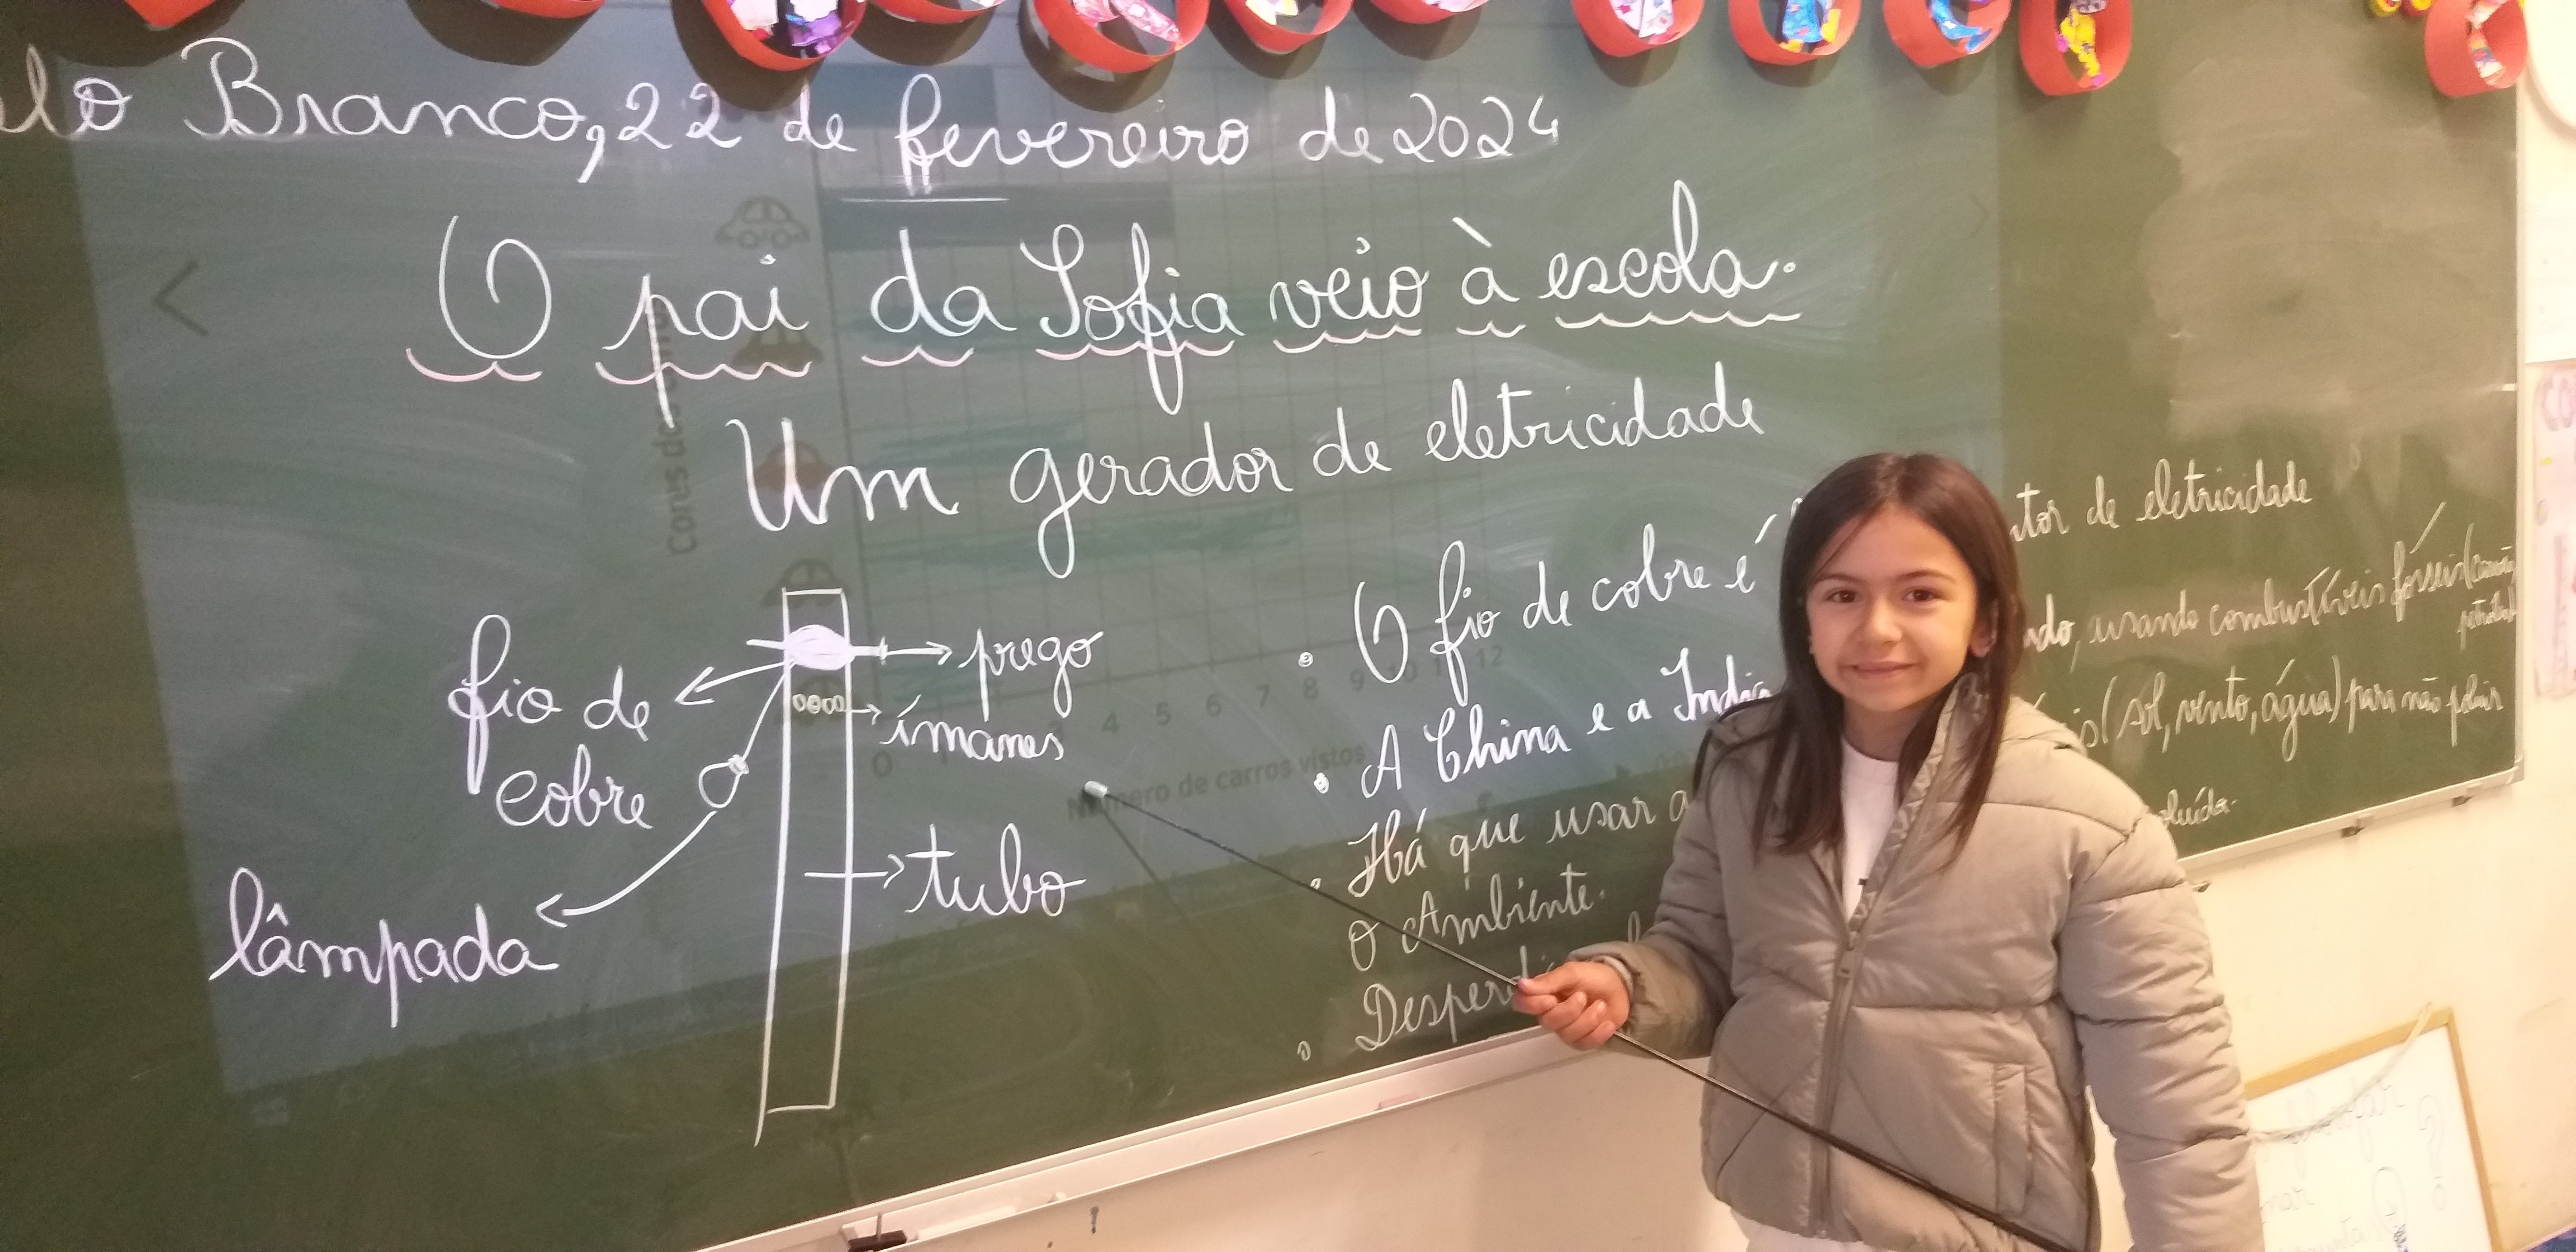 lo Branco, 22 de fevereiro de 2024
O pai da Sofia veio à escola.
Um gerador de eletricidade
fio de
cobre
lâmpada
prego
ímanes
tubo
• O fio de cobre é utor de eletricidade
• A China e a Índia ndo, usando combustíveis fósseis (carvão,
petróleo)
• Há que usar a is (sol, vento, água) para não poluir
o Ambiente.
• Desperdi oluída.
Cores dos carros
Número de carros vistos
0 4 5 6 7 8 9 10 11 12